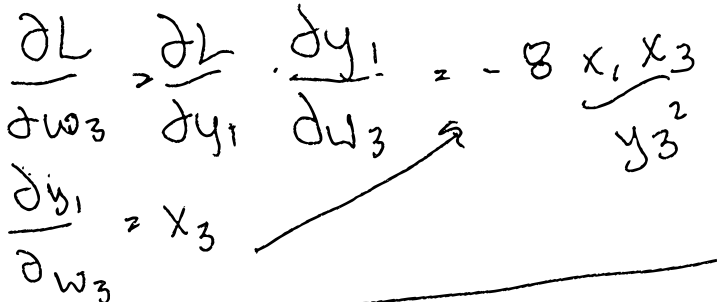 ∂L/∂w₃ = ∂L/∂y₁ · ∂y₁/∂w₃ = - 8 x₁ x₃/y₃²
∂y₁/∂w₃ = x₃